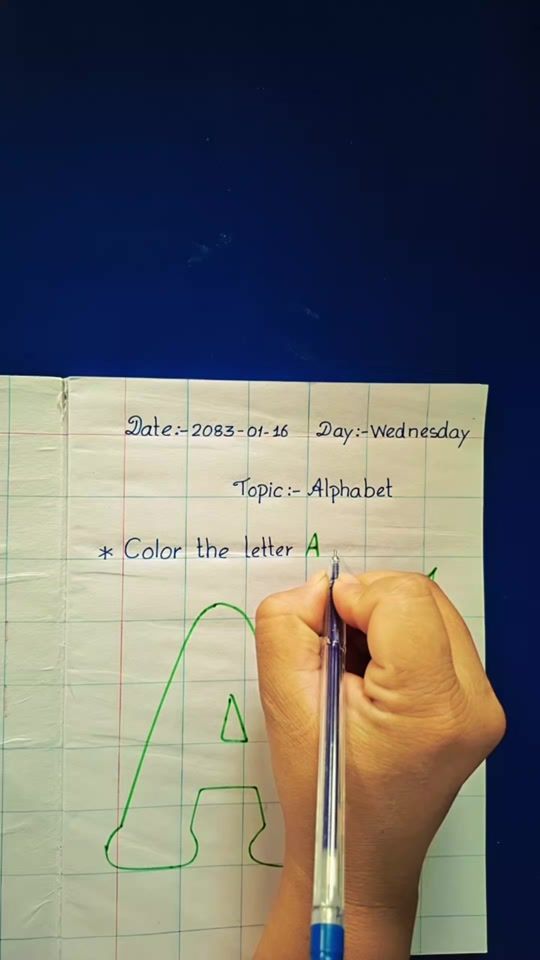 Date:- 2083-01-16 Day:- Wednesday
Topic:- Alphabet
* Color the letter A
A